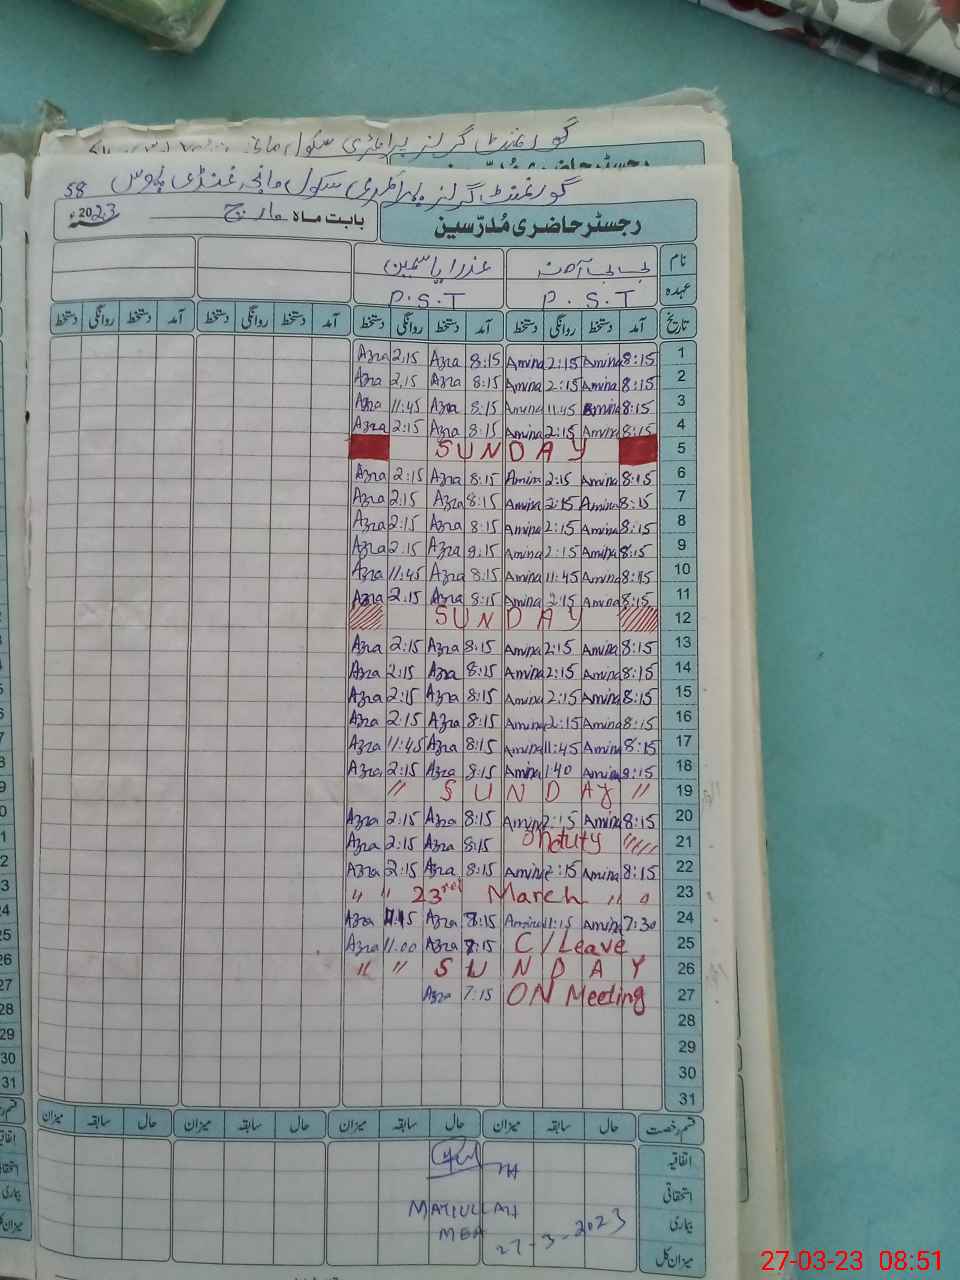 گورنمنٹ گرلز پرائمری سکول
58 گورنمنٹ گرلز پرائمری سکول مانجہ غنڈی
رجسٹر حاضری مُدرّسین بابت ماہ مارچ 2023ء
نام بی بی آمنہ عذرا یاسمین
عہدہ P.S.T P.S.T
تاریخ آمد دستخط روانگی دستخط آمد دستخط روانگی دستخط آمد دستخط روانگی دستخط آمد دستخط روانگی دستخط
1 8:15 Amina 2:15 Amina 8:15 Azra 2:15 Azra
2 8:15 Amina 2:15 Amina 8:15 Azra 2:15 Azra
3 8:15 Amina 11:45 Amina 8:15 Azra 11:45 Azra
4 8:15 Amina 2:15 Amina 8:15 Azra 2:15 Azra
5 SUNDAY
6 8:15 Amina 2:15 Amina 8:15 Azra 2:15 Azra
7 8:15 Amina 2:15 Amina 8:15 Azra 2:15 Azra
8 8:15 Amina 2:15 Amina 8:15 Azra 2:15 Azra
9 8:15 Amina 2:15 Amina 9:15 Azra 2:15 Azra
10 8:15 Amina 11:45 Amina 8:15 Azra 11:45 Azra
11 8:15 Amina 2:15 Amina 8:15 Azra 2:15 Azra
12 SUNDAY
13 8:15 Amina 2:15 Amina 8:15 Azra 2:15 Azra
14 8:15 Amina 2:15 Amina 8:15 Azra 2:15 Azra
15 8:15 Amina 2:15 Amina 8:15 Azra 2:15 Azra
16 8:15 Amina 2:15 Amina 8:15 Azra 2:15 Azra
17 8:15 Amina 11:45 Amina 8:15 Azra 11:45 Azra
18 8:15 Amina 1:40 Amina 8:15 Azra 2:15 Azra
19 " SUNDAY "
20 8:15 Amina 2:15 Amina 8:15 Azra 2:15 Azra
21 Onduty 8:15 Azra 2:15 Azra
22 8:15 Amina 2:15 Amina 8:15 Azra 2:15 Azra
23 " " 23rd March " "
24 7:30 Amina 11:15 Amina 8:15 Azra Azra
25 C/Leave Azra 11:00 Azra
26 " " SUNDAY
27 ON Meeting 7:15 Azra
28
29
30
31
قسم رخصت حال سابقہ میزان حال سابقہ میزان حال سابقہ میزان حال سابقہ میزان
اتفاقیہ
استحقاقی
بیماری
میزان کل
MATIULLAH
MEA
27-3-2023
27-03-23 08:51